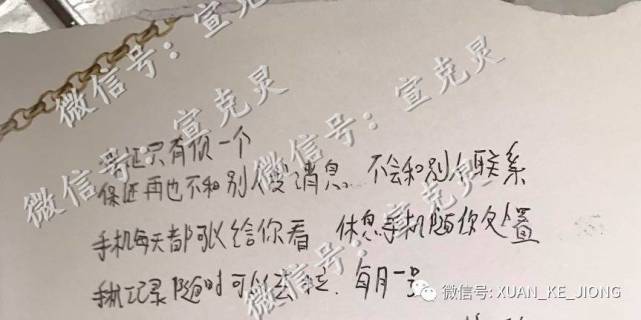 保证只有你一个
保证再也不和别人发消息 不会和别人联系
手机每天都可以给你看 休息手机随你处置
手机记录随时可以去拉. 每月一号
微信号:宣克灵
微信号:宣克灵
微信号:宣克灵
微信号:宣克灵
微信号: XUAN_KE_JIONG